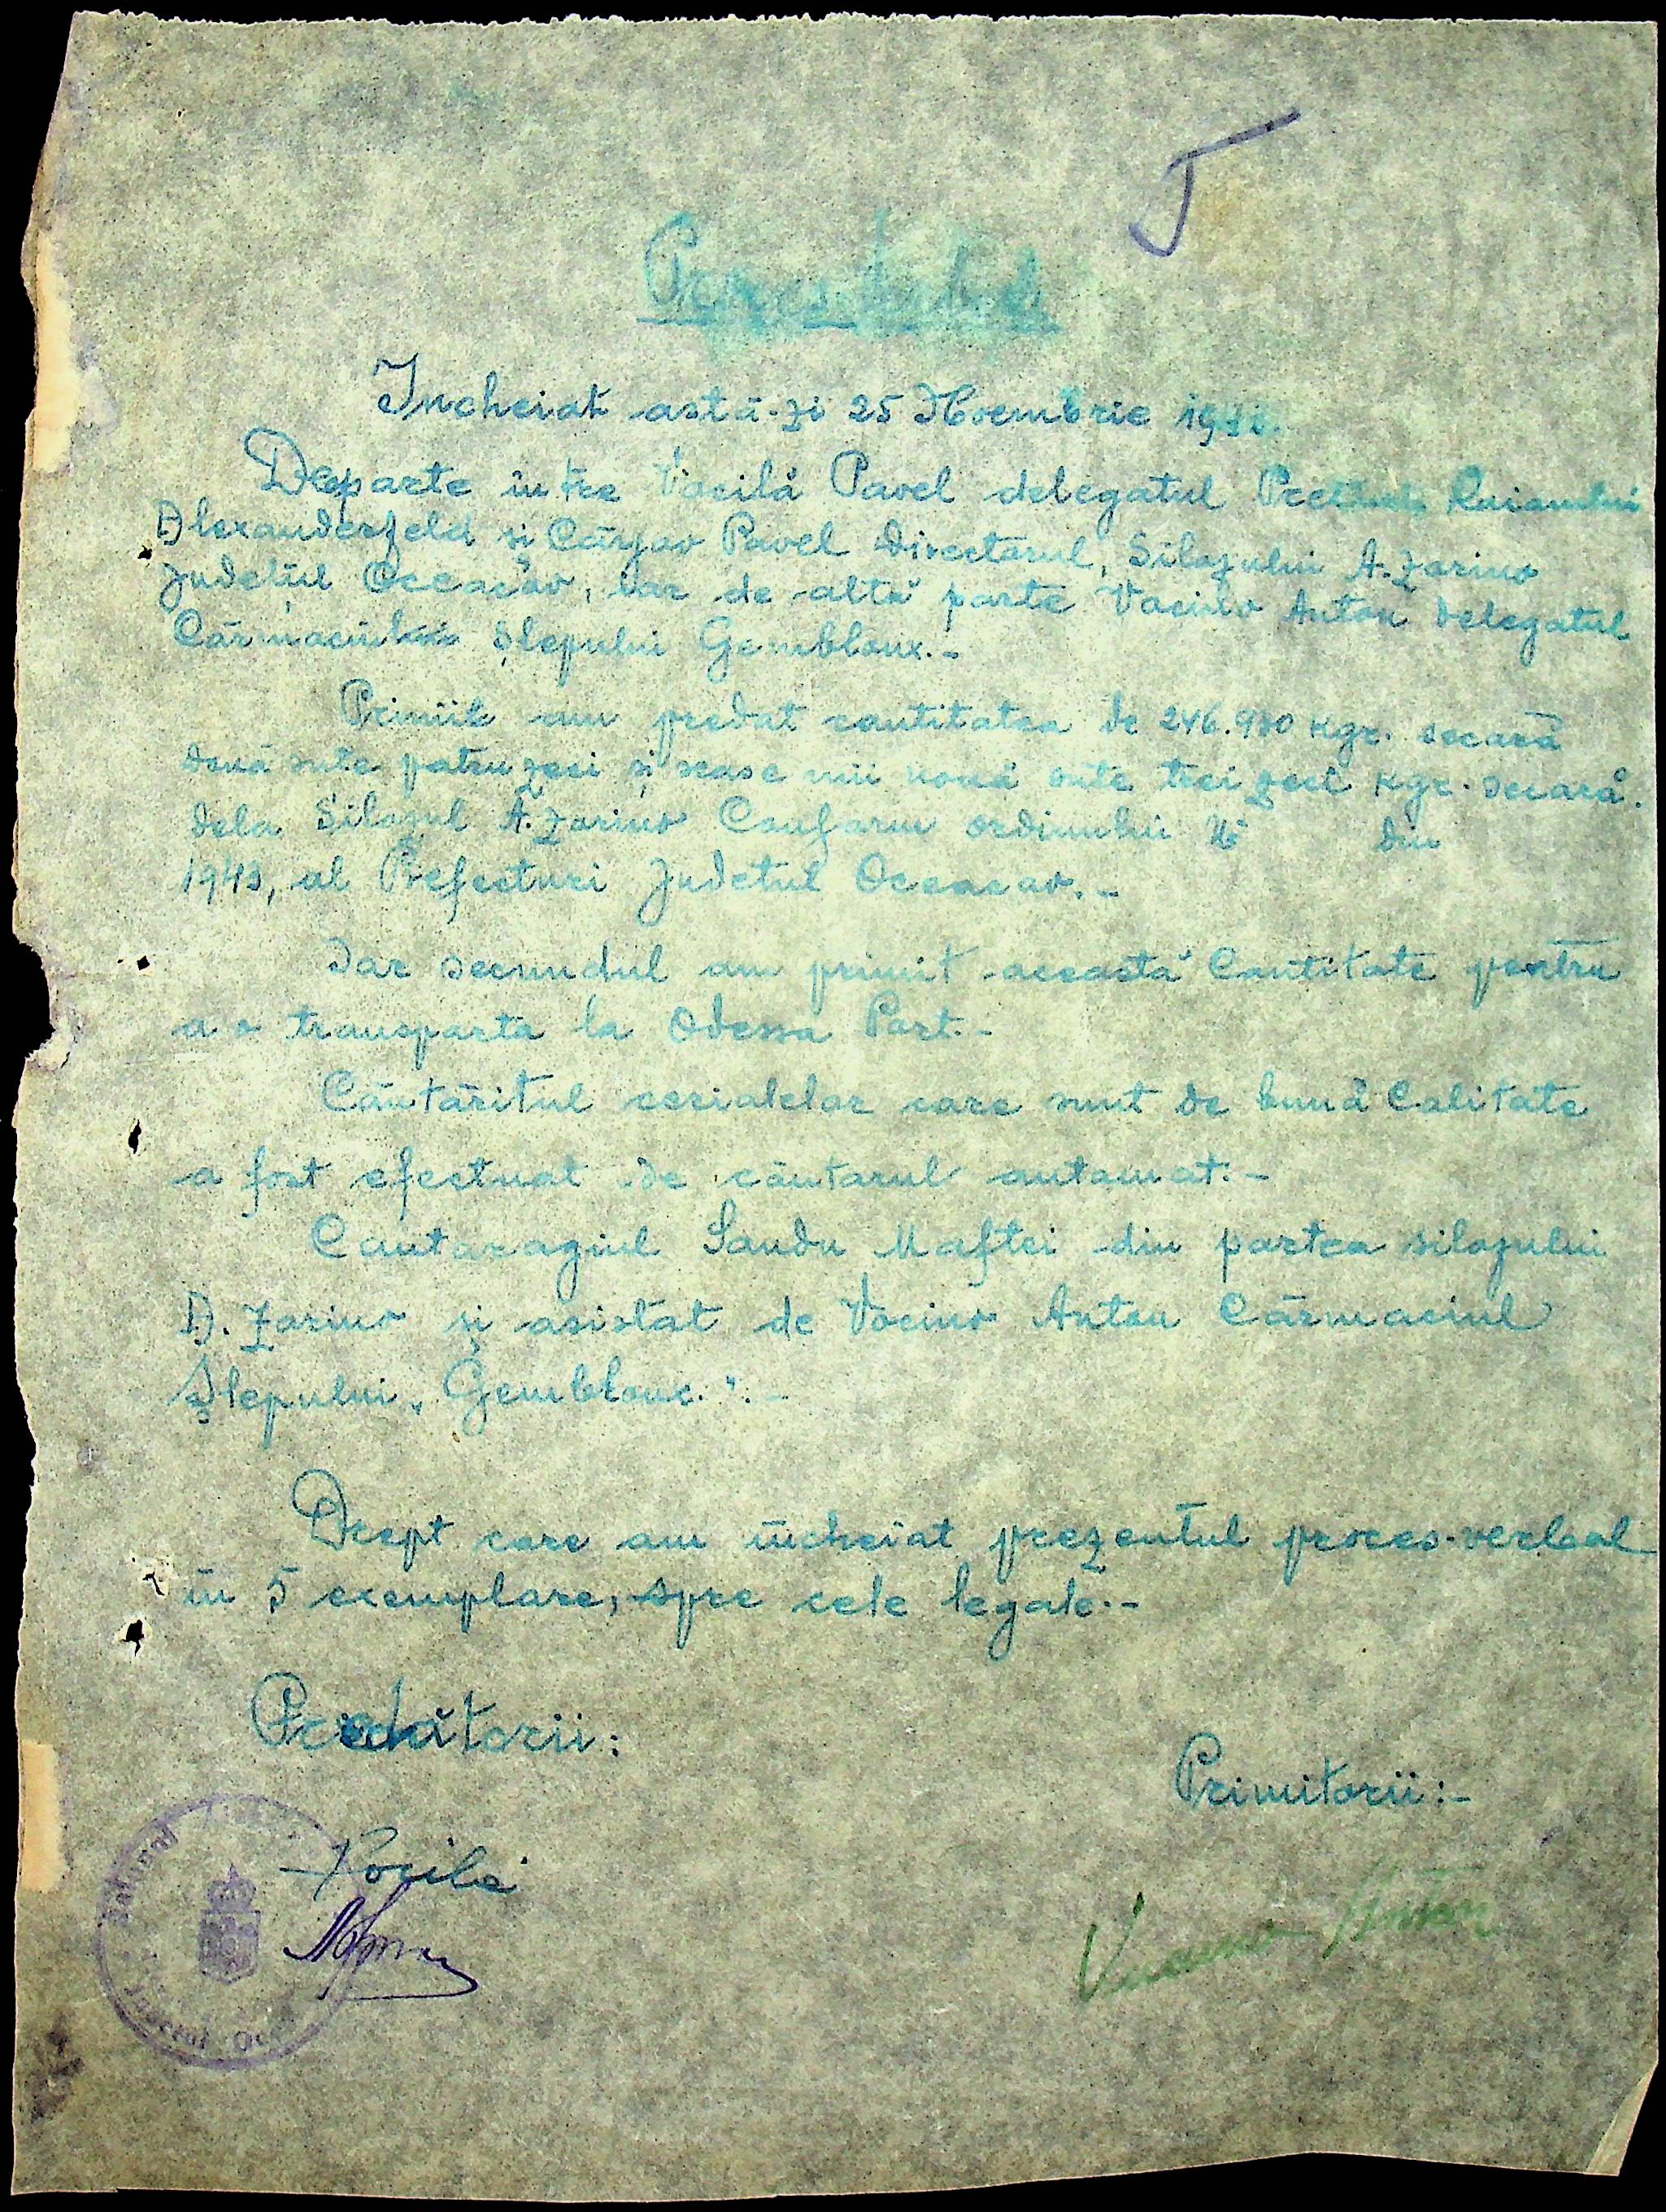 5
Incheiat astă-zi 25 Noembrie
Deoparte între Vasilă Pavel delegatul Raionului
Alexanderfeld și Pavel Directorul, Silozului A. Zarino
Județul Oceacov, iar de altă parte Anton delegatul
Șlepului Gembloux.-
Primii am predat cantitatea de 246.930 Kgr. secară
două sute patru zeci și șease mii nouă sute trei zeci Kgr. secară.
dela Silozul A. Zarino Conform ordinului № din
1943, al Prefecturi Județul Oceacov.-
Iar secundul am primit această Cantitate pentru
a o transporta la Odessa Port.-
Cântăritul cerialelor care sunt de bună Calitate
a fost efectuat de cântarul automat.-
Cantaragiul Sandu Maftei din partea silozului
A. Zarino și asistat de Anton Cârmaciul
Șlepului „Gembloux.".-
Drept care am incheiat prezentul proces-verbal
în 5 exemplare, spre cele legale.-
Predătorii:
Primitorii:-